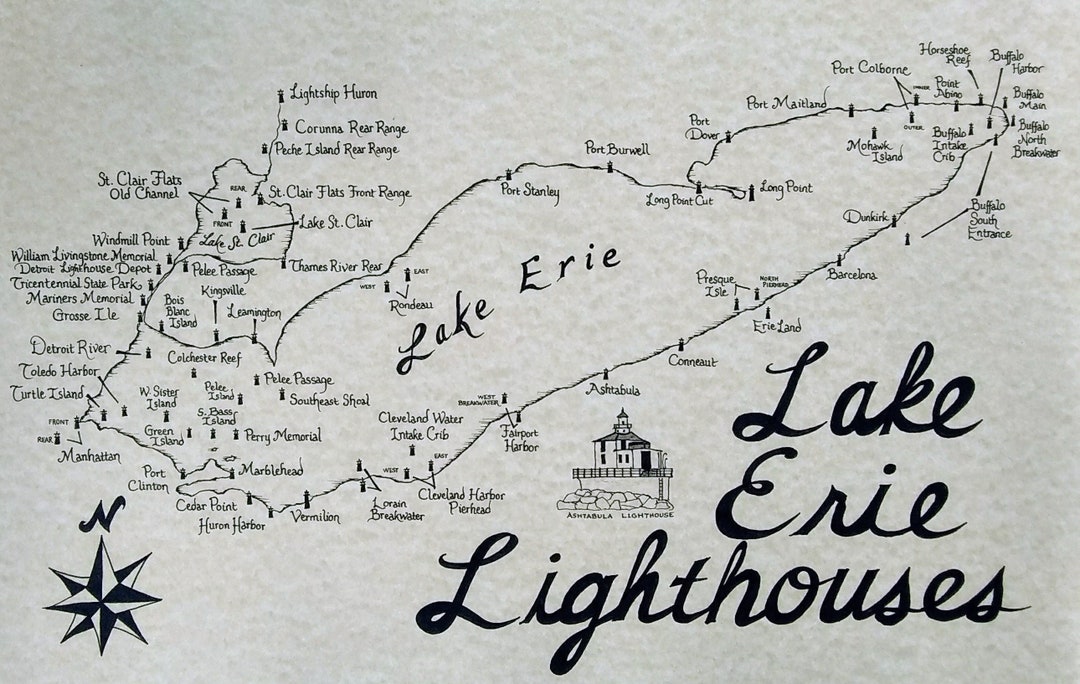 Lightship Huron
Corunna Rear Range
Peche Island Rear Range
St. Clair Flats
Old Channel
REAR
St. Clair Flats Front Range
FRONT
Lake St. Clair
Lake St. Clair
Windmill Point
William Livingstone Memorial
Detroit Lighthouse Depot
Tricentennial State Park
Mariners Memorial
Grosse Ile
Pelee Passage
Thames River Rear
Bois
Blanc
Island
Kingsville
Leamington
Detroit River
Colchester Reef
Toledo Harbor
Turtle Island
W. Sister
Island
Pelee
Island
Pelee Passage
Southeast Shoal
S. Bass
Island
Green
Island
Perry Memorial
FRONT
REAR
Manhattan
Port
Clinton
Marblehead
Cedar Point
Huron Harbor
Vermilion
Lorain
Breakwater
WEST
EAST
Cleveland Harbor
Pierhead
Cleveland Water
Intake Crib
WEST
BREAKWATER
Fairport
Harbor
Ashtabula
Conneaut
Presque
Isle
NORTH
PIERHEAD
Erie Land
Barcelona
Dunkirk
Buffalo
South
Entrance
Buffalo
North
Breakwater
Buffalo
Main
Buffalo
Harbor
Horseshoe
Reef
Buffalo
Intake
Crib
Point
Abino
Port Colborne
INNER
OUTER
Mohawk
Island
Port Maitland
Port
Dover
Long Point
Long Point Cut
Port Burwell
Port Stanley
EAST
WEST
Rondeau
Lake Erie
ASHTABULA LIGHTHOUSE
Lake
Erie
Lighthouses
N